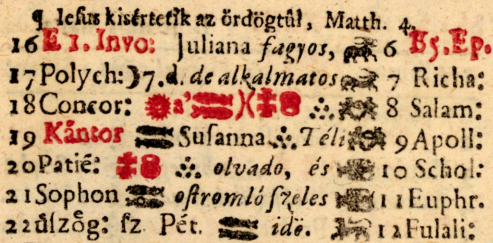 ¶ Iesus kisértetik az ördögtûl, Matth. 4.
16 E 1. Invo: Juliana fagyos, 6 B5. Ep.
17 Polych: 7. d. de alkalmatos 7 Richa:
18 Concor: a' 8 Salam:
19 Kántor Susanna Téli 9 Apoll:
20 Patiē: olvado, és 10 Schol:
21 Sophon ostromló szeles 11 Euphr.
22 ûlzög: sz Pét. idö. 12 Fulali: